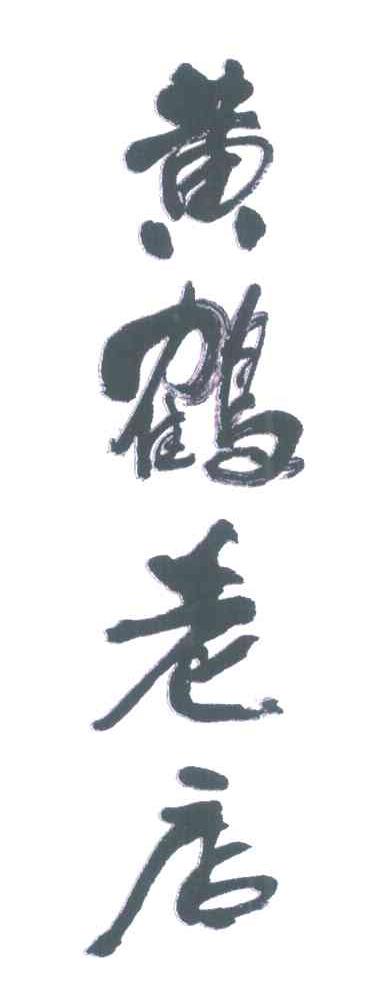 黄鹤老店